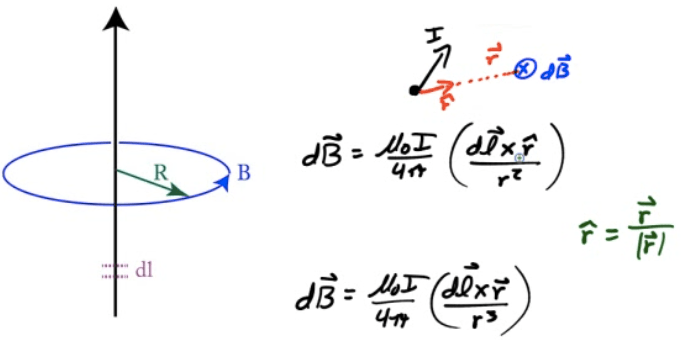 I
r⃗
dB⃗
r̂
R
B
dB⃗ = μ₀I/4π (dl⃗ × r̂ / r²)
r̂ = r⃗/|r⃗|
dl
dB⃗ = μ₀I/4π (dl⃗ × r⃗ / r³)